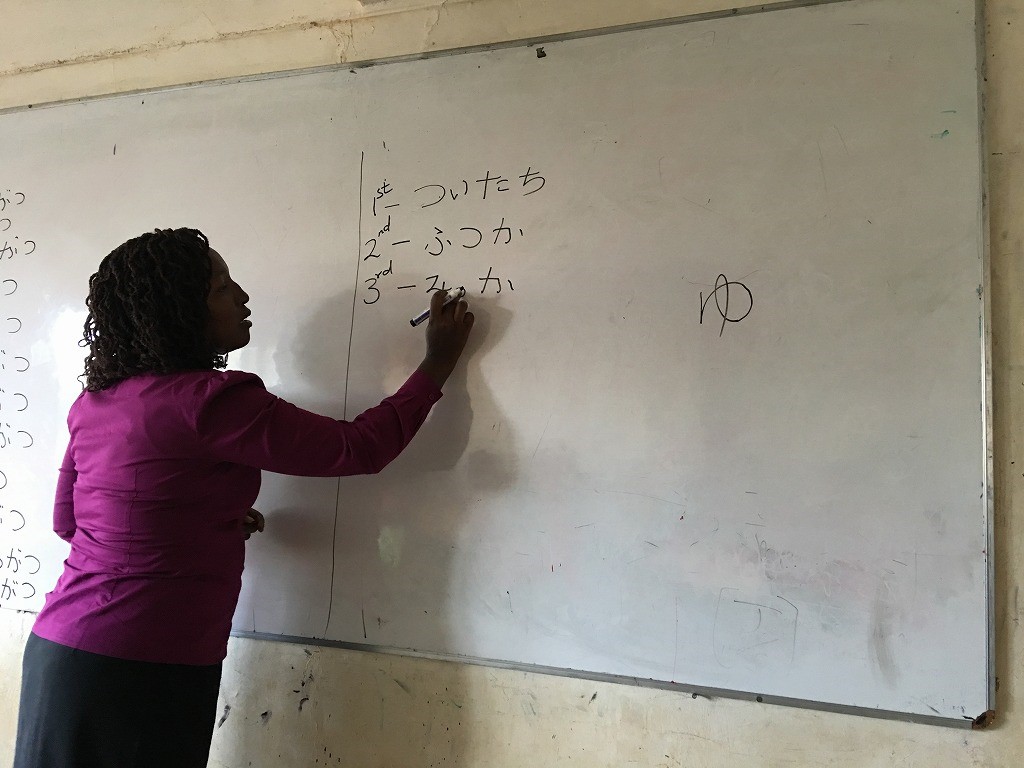 がつ
つ
がつ
つ
つ
がつ
がつ
がつ
つ
がつ
がつ
がつ
1st - ついたち
2nd - ふつか
3rd - みっか
ゆ